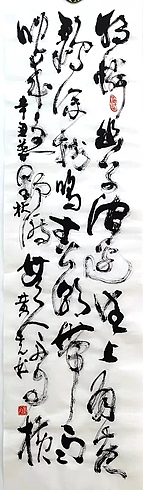 独怜幽草涧边生上有黄
鹂深树鸣春潮带雨
晚来急野渡无人舟自横
辛丑